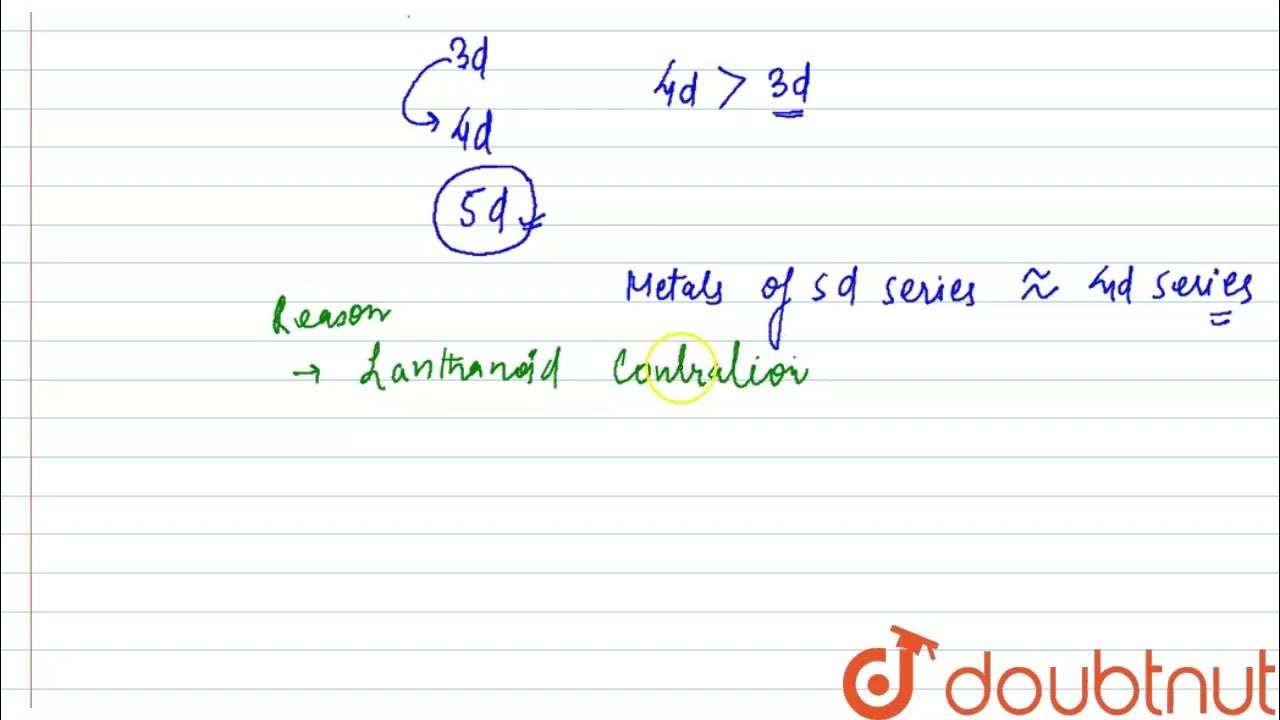 3d
4d > 3d
4d
5d
Metals of 5d series ≈ 4d series
Reason
→ Lanthanoid Contration
doubtnut